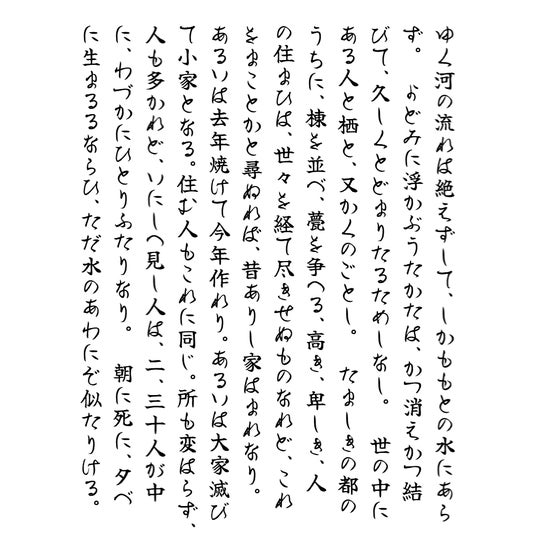 ゆく河の流れは絶えずして、しかももとの水にあら
ず。　よどみに浮かぶうたかたは、かつ消えかつ結
びて、久しくとどまりたるためしなし。　世の中に
ある人と栖と、又かくのごとし。　たましきの都の
うちに、棟を並べ、甍を争へる、高き、卑しき、人
の住まひは、世々を経て尽きせぬものなれど、これ
をまことかと尋ぬれば、昔ありし家はまれなり。
あるいは去年焼けて今年作れり。あるいは大家滅び
て小家となる。住む人もこれに同じ。所も変はらず、
人も多かれど、いにしへ見し人は、二、三十人が中
に、わづかにひとりふたりなり。　朝に死に、夕べ
に生まるるならひ、ただ水のあわにぞ似たりける。